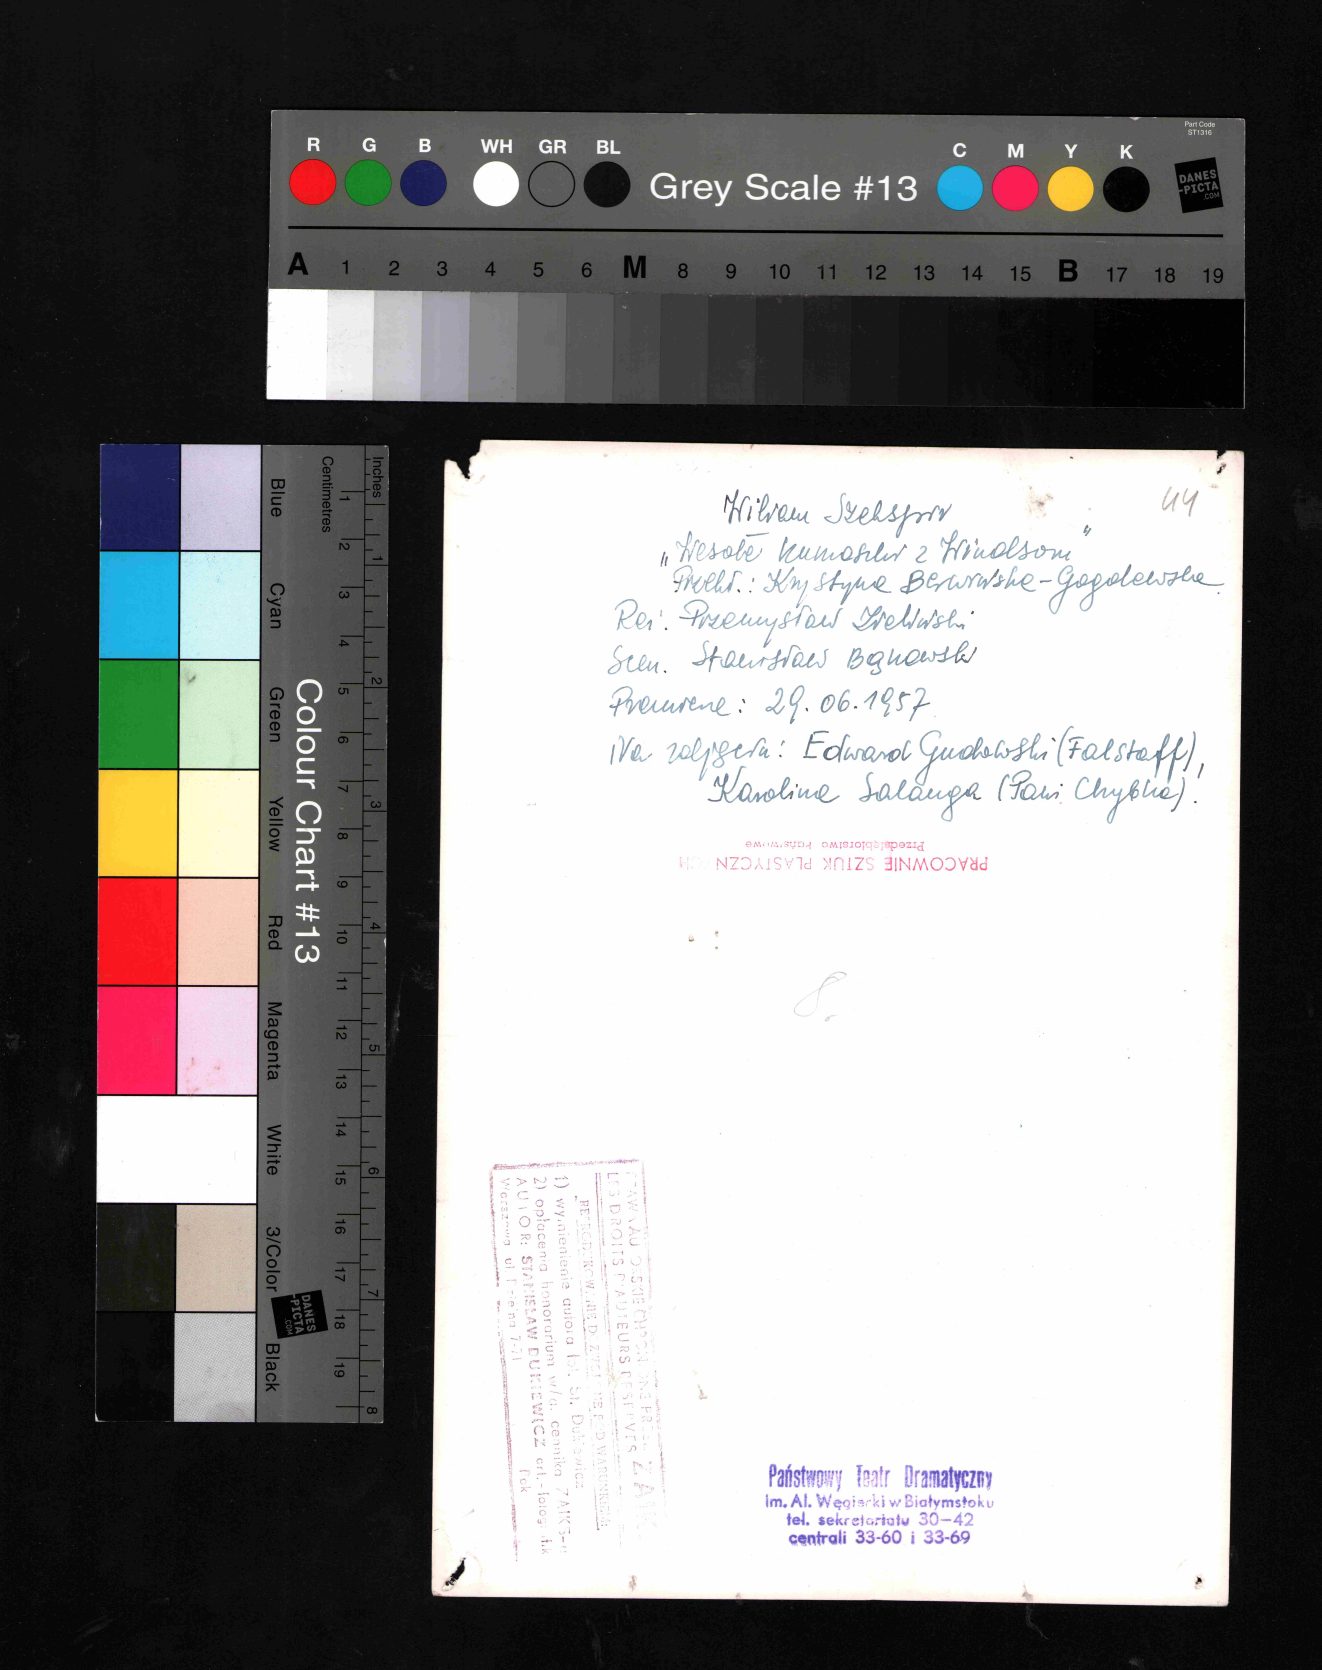 Part Code
ST1316
R G B WH GR BL C M Y K
Grey Scale #13
DANES
-PICTA
.COM
A 1 2 3 4 5 6 M 8 9 10 11 12 13 14 15 B 17 18 19
Inches
Centimetres
1 2 3 4 5 6 7 8 9 10 11 12 13 14 15 16 17 18 19
1 2 3 4 5 6 7 8
Colour Chart #13
Blue
Cyan
Green
Yellow
Red
Magenta
White
3/Color
Black
DANES
-PICTA
.COM
44
Wiliam Szekspir
„Wesołe kumoszki z Windsoru"
Przekł.: Krystyna Berwińska-Gogolewska
Reż. Przemysław Zieliński
Scen. Stanisław Bąkowski
Premiera: 29.06.1957
Na zdjęciu: Edward Gudowski (Falstaff),
Karolina Salanga (Pani Chybka).
Przedsiębiorstwo Państwowe
PRACOWNIE SZTUK PLASTYCZN CH
8.
LES DROITS D'AUTEURS RESERVES ZAIKS
1) wymienienie autora fot. St. Dukiewicz
2) opłacenia honorarium w/g. cennika ZAIKS-u
AUTOR: STANISŁAW DUKIEWICZ art.-fotografik
Warszawa ul.
Państwowy Teatr Dramatyczny
im. Al. Węgierki w Białymstoku
tel. sekretariatu 30-42
centrali 33-60 i 33-69